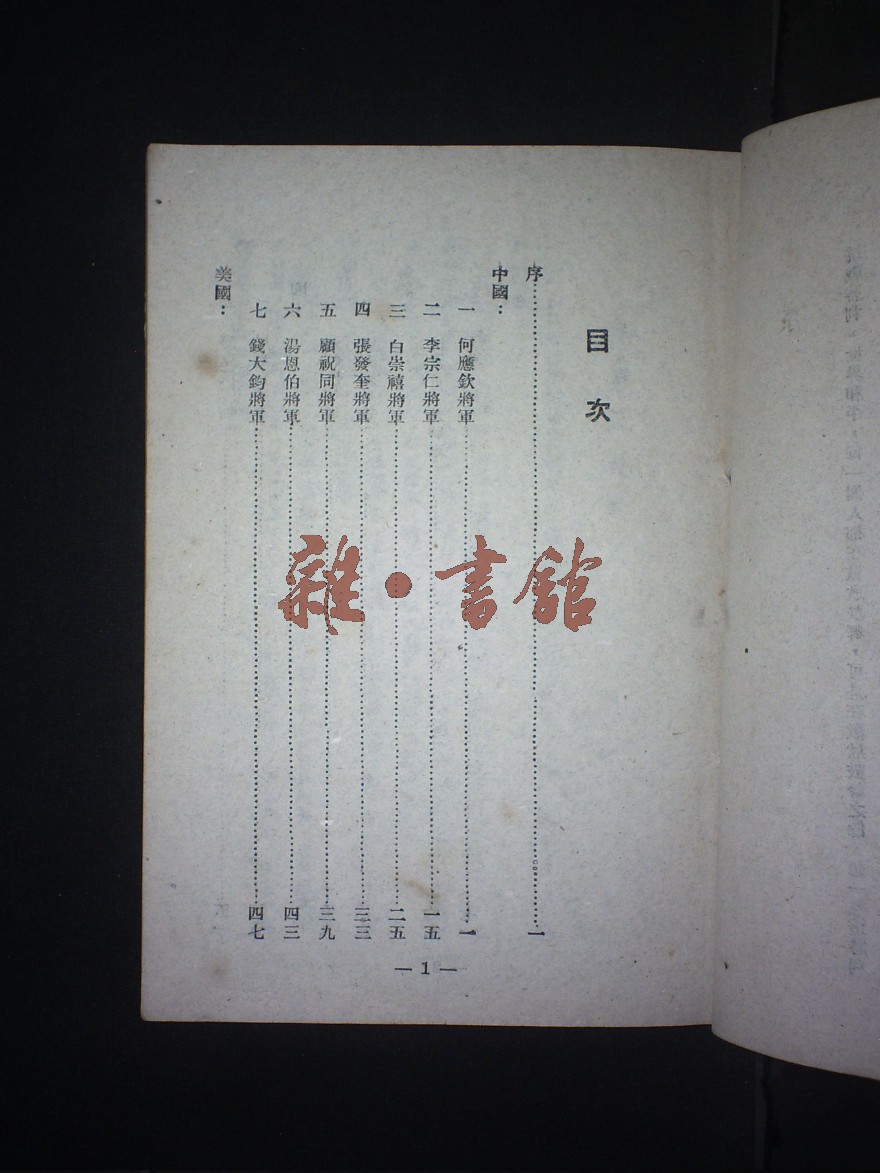 目次
序……一
中國：
一　何應欽將軍……一
二　李宗仁將軍……一五
三　白崇禧將軍……二五
四　張發奎將軍……三三
五　顧祝同將軍……三九
六　湯恩伯將軍……四三
七　錢大鈞將軍……四七
美國：
— 1 —
雜·書館